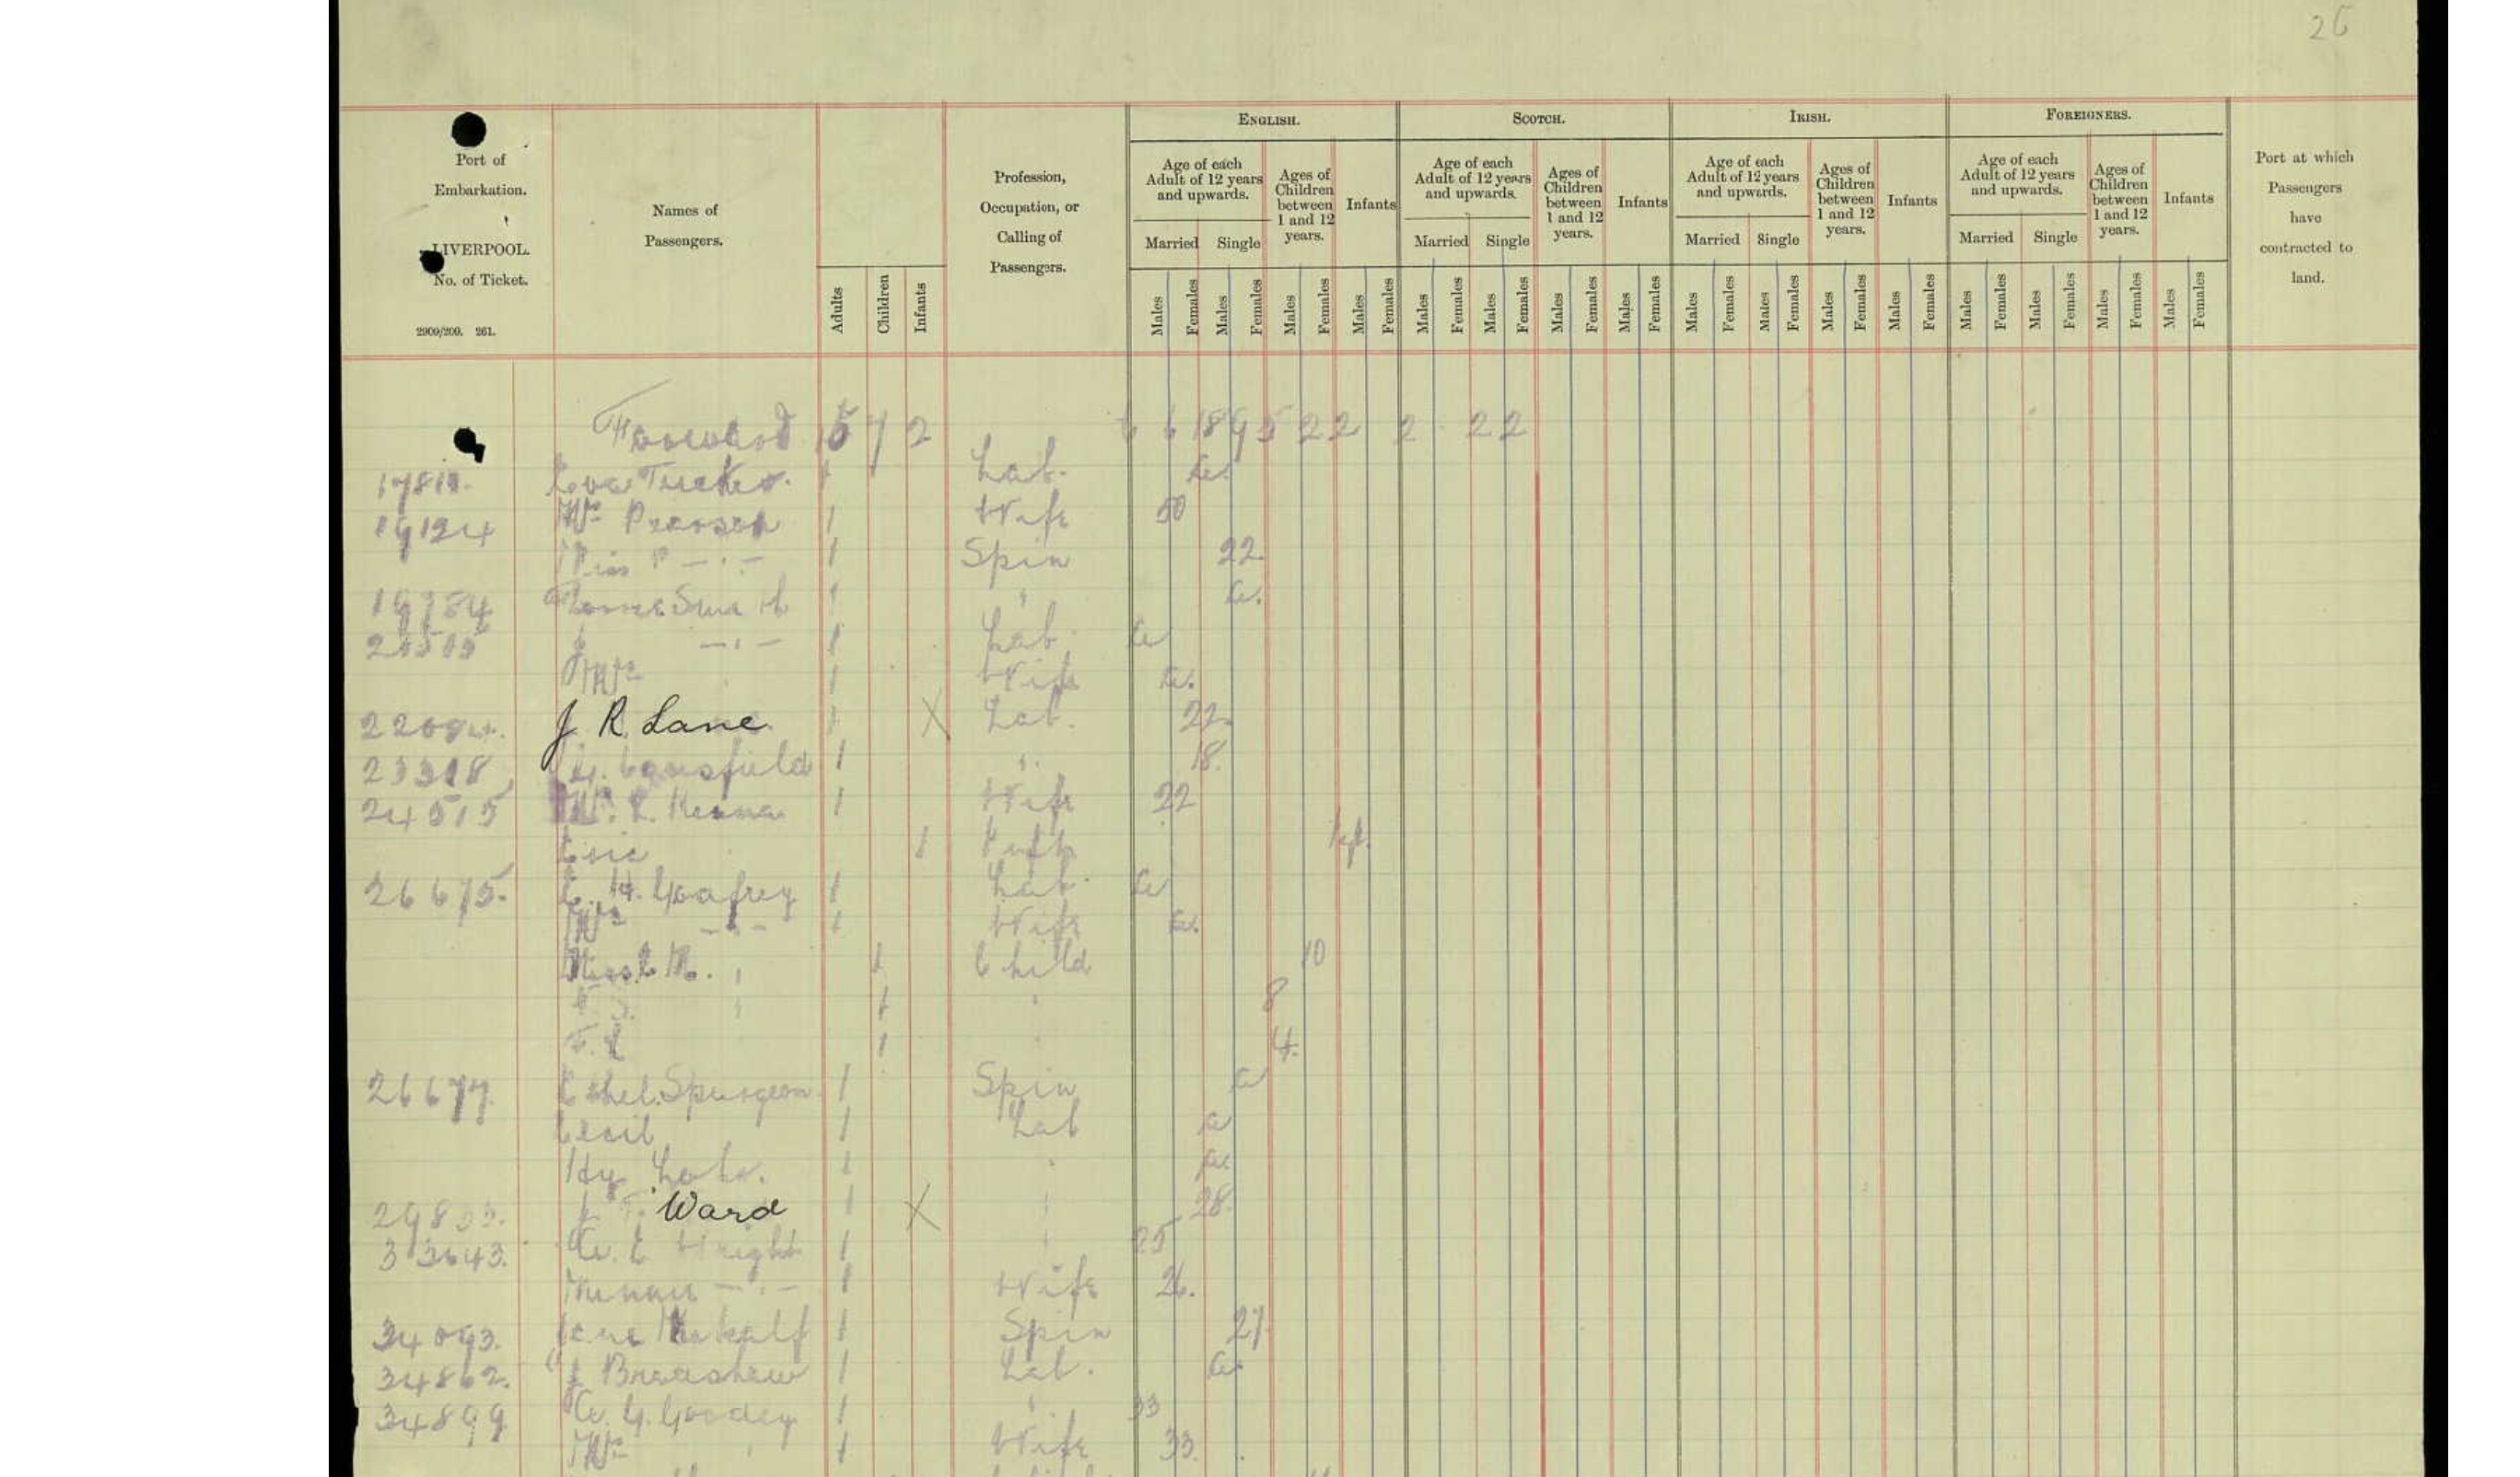 26
ENGLISH. SCOTCH. IRISH. FOREIGNERS.
Port of Embarkation. LIVERPOOL. No. of Ticket.
2909/209. 261.
Names of Passengers.
Adults Children Infants
Profession, Occupation, or Calling of Passengers.
Age of each Adult of 12 years and upwards. Ages of Children between 1 and 12 years. Infants
Age of each Adult of 12 years and upwards. Ages of Children between 1 and 12 years. Infants
Age of each Adult of 12 years and upwards. Ages of Children between 1 and 12 years. Infants
Age of each Adult of 12 years and upwards. Ages of Children between 1 and 12 years. Infants
Port at which Passengers have contracted to land.
Married Single Married Single Married Single Married Single
Males Females Males Females Males Females Males Females
Males Females Males Females Males Females Males Females
Males Females Males Females Males Females Males Females
Males Females Males Females Males Females Males Females
Forward 7 2 6 6 18 9 5 2 2 2 2 2
Eva Tucker. 1 Lab. a.
19124 Mrs Pearson 1 Wife 50
Miss P -"- 1 Spin 22.
Smith 1 " a.
J -"- 1 Lab. a
Mrs 1 Wife a.
J R Lane. 1 X Lab. 22.
23318 1 " 18.
24515 Mrs 1 Wife 22
Eric 1
26675. E. H. Goafrey 1 Lab. a
Mrs -"- 1 Wife a.
Miss E M. " 1 Child 10
1 " 8
1 " 4.
26677. Ethel Spurgeon 1 Spin a
Cecil 1 Lab a
Hy. 1 " a.
J T. Ward 1 X " 28.
33643. A. E Wright 1 " 25
Minnie -"- 1 Wife 26.
34093. Jane Metcalf 1 Spin 27.
34862. J Bradshaw 1 Lab. a.
34899 A. G. Goodey 1 " 33
Mrs " 1 Wife 33.